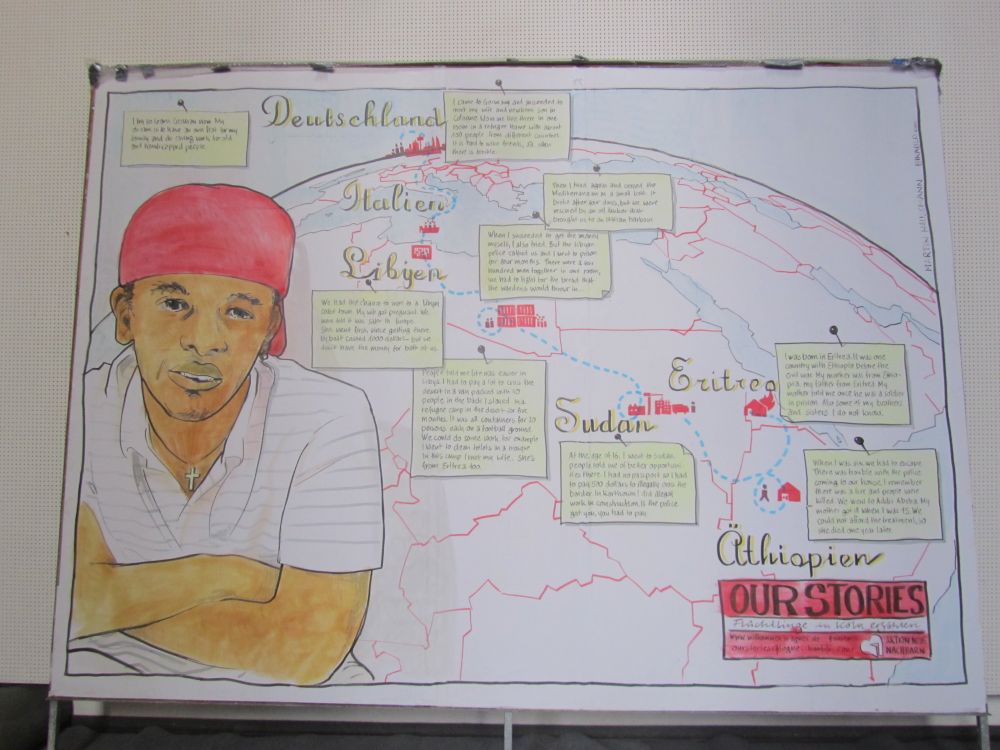 Deutschland
I came to Germany and succeeded to
meet my wife and newborn son in
Cologne. Now we live there in one
room in a refugee home with about
people from different countries.
It is hard to make friends,
there is trouble.
I try to learn German now. My
dream is to have an own flat for my
family and do caring work for old
and handicapped people.
Italien
Then I tried again and crossed the
Mediterranean in a small boat. It
broke after four days, but we were
rescued by an oil tanker that
brought us to an Italian harbour.
When I succeeded to get the money
myself, I also tried. But the Libyan
police catched us and I went to prison
for four months. There were a few
hundred men together in one room,
we had to fight for the bread that
the wardens would throw in.
Libyen
We had the chance to move to a Libyan
town. My wife got pregnant. We
were told it was safer in Europe.
She went first, since getting there
by boat costed 1000 dollars - but we
didn't have the money for both of us.
People told me life was easier in
Libya. I had to pay a lot to cross the
desert in a van packed with
people in the back. I stayed in a
refugee camp in the desert for five
months. It was all containers for 20
persons each on a football ground.
We could do some work, for example
I went to clean toilets in a mosque.
In this camp I met my wife. She's
from Eritrea too.
Eritrea
I was born in Eritrea. It was one
country with Ethiopia before the
civil war. My mother was from Ethio-
pia, my father from Eritrea. My
mother told me once he was a soldier
in prison. Also some of my brothers
and sisters I do not know.
Sudan
At the age of 16, I went to Sudan,
people told me of better opportuni-
ties there. I had no passport so I had
to pay 500 dollars to illegally cross the
border. In Karthoum I did illegal
work in construction. If the police
got you, you had to pay.
When I was six we had to escape.
There was trouble with the police
coming to our house, I remember
there was a fire and people were
killed. We went to Addis Abeba. My
mother got ill when I was 15. We
could not afford the treatment, so
she died one year later.
Äthiopien
OUR STORIES
Flüchtlinge in Köln erzählen
AKTION NEUE
NACHBARN